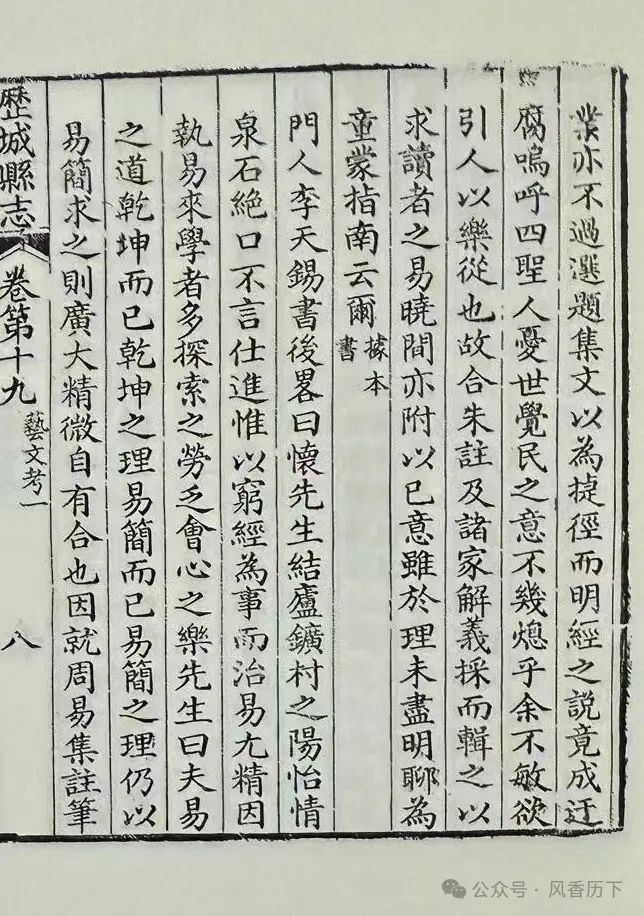 業亦不過選題集文以為捷徑而明經之説竟成迂
腐嗚呼四聖人憂世覺民之意不幾熄乎余不敏欲
引人以樂從也故合朱註及諸家解義採而輯之以
求讀者之易曉間亦附以已意雖於理未盡明聊為
童蒙指南云爾據本書
門人李天錫書後畧曰懷先生結廬鑛村之陽怡情
泉石絶口不言仕進惟以窮經為事而治易尤精因
執易來學者多探索之勞乏會心之樂先生曰夫易
之道乾坤而已乾坤之理易簡而已易簡之理仍以
易簡求之則廣大精微自有合也因就周易集註筆
歷城縣志 卷第十九 藝文考一 八
公众号·风香历下